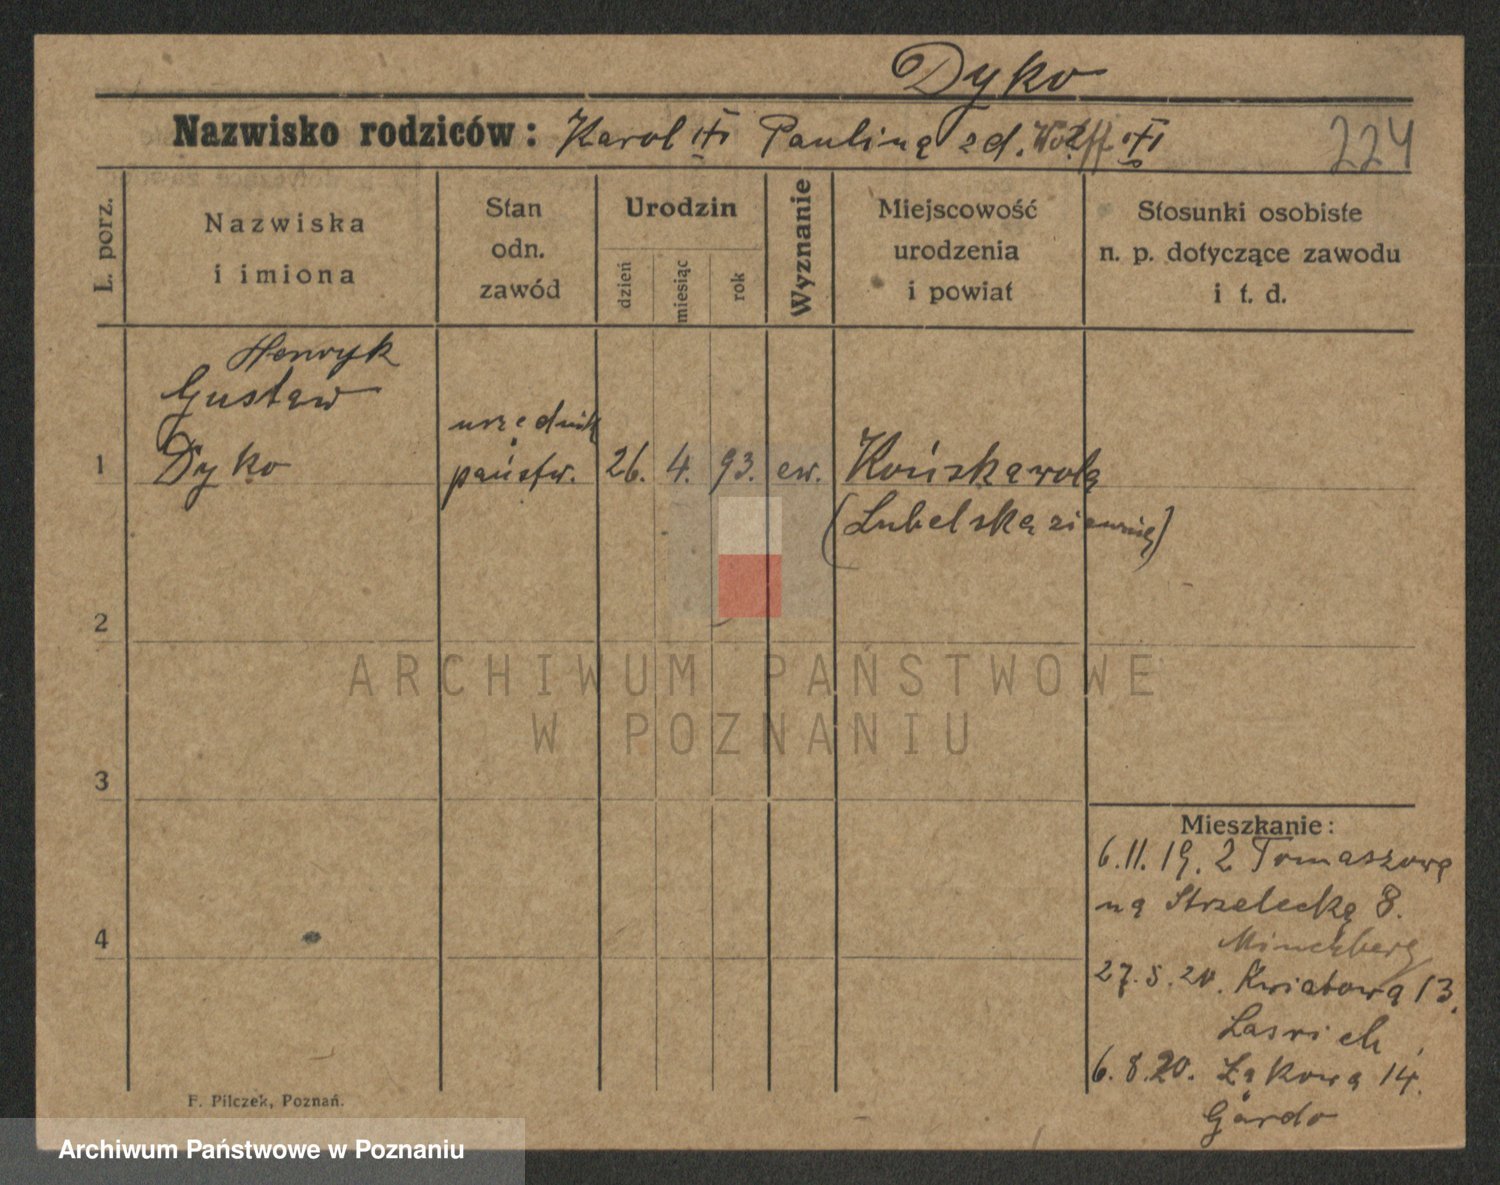 Dyko
Nazwisko rodziców: Karol Paulina zd. Wolff
224
L. porz.
Nazwiska
i imiona
Stan
odn.
zawód
Urodzin
dzień
miesiąc
rok
Wyznanie
Miejscowość
urodzenia
i powiat
Stosunki osobiste
n. p. dotyczące zawodu
i t. d.
Henryk
Gustaw
1 Dyko
urzędnik
państw.
26. 4. 93. ew.
Końskawola
(Lubelska ziemia)
2
3
4
ARCHIWUM PAŃSTWOWE
W POZNANIU
Mieszkanie:
6.11.19. z Tomaszowa
na Strzelecka 8.
Minchberg
27.5.20. Kwiatowa 13.
6.8.20. Łąkowa 14.
Gardo
F. Pilczek, Poznań.
Archiwum Państwowe w Poznaniu